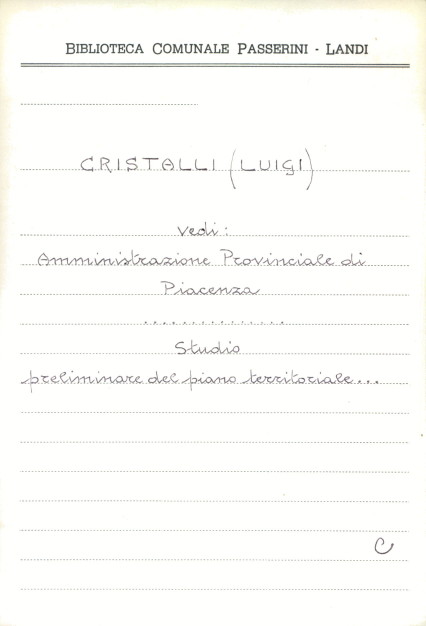 BIBLIOTECA COMUNALE PASSERINI - LANDI
CRISTALLI (LUIGI)
Vedi:
Amministrazione Provinciale di
Piacenza
...............
Studio
preliminare del piano territoriale...
C